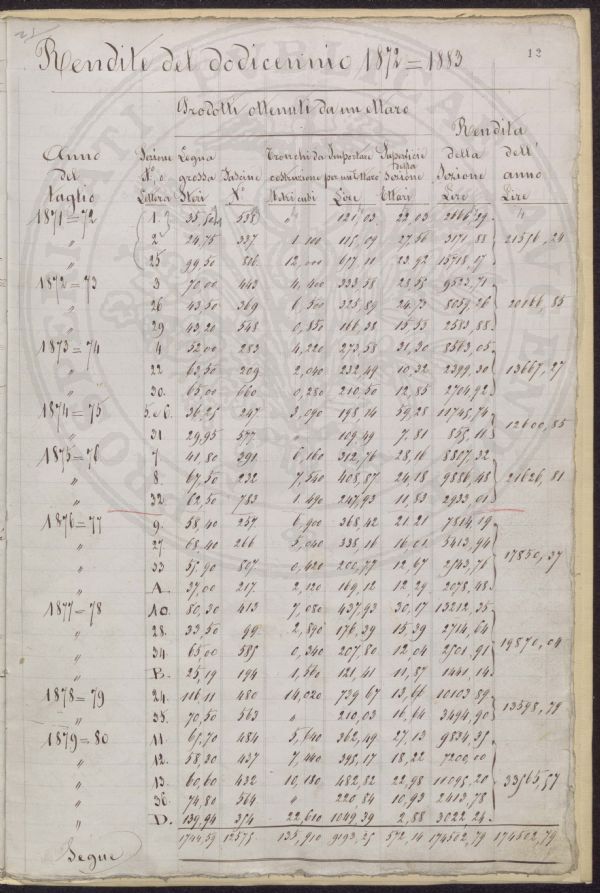 12
Rendite del dodicennio 1872=1883
Prodotti ottenuti da un Ettaro
Rendita
Anno Sezione Legna Tronchi da Importare Superficie della dell'
del N.º o grossa Fascine costruzione per un Ettaro della Sezione Sezione anno
taglio Lettera Steri N.º Metri cubi Lire Ettari Lire Lire
1871=72 1. 35,50 538 " 121,03 22,03 2666,29 "
" 2 24,75 337 1.100 115,09 27,56 3171,88 21516,24
25 99,50 816 12,000 617,11 23,92 15718,17
1872=73 3 70,00 443 4,400 333,58 28,55 9523,71
" 26 43,50 369 6,500 325,89 24,73 8059,26 20166,85
" 29 43,20 548 0,850 166,38 15,53 2583,88
1873=74 4 52,00 283 4,220 273,58 31,30 8563,05
" 22 62,50 209 2,040 232,49 10,32 2399,30 13667,27
" 30. 65,00 660 0,280 210,50 12,85 2704,92
1874=75 5.e6. 36,25 247 3,090 198,14 59,28 11745,74
" 31. 29,95 577 " 109,49 7,81 855,11 12600,85
1875=76 7 41,80 391 6,160 312,76 28,16 8807,32
" 8. 67,50 232 7,540 408,87 24,18 9886,48 21626,81
" 32. 62,50 783 1.490 247,93 11,83 2933,01
1876=77 9. 58,40 257 6,900 368,42 21,21 7814,19
" 27. 68,40 266 5,040 338,16 16,01 5413,94
" 33 55,90 807 0,420 200,77 12,67 2543,76 17850,37
" A. 37,00 217. 2,120 169,12 12,29 2078,48
1877=78 10. 80,30 413 7,080 437,93 30,17 13212,35
" 28. 33,50 99 2,890 176,39 15,39 2714,64
" 34. 65,00 585 0,340 207,80 12,04 2501,91 19870,04
" B. 25,19 194 1,560 121,41 11,87 1441,14
1878=79 24. 116,11 480 14,020 739,67 13,66 10103,89
" 35. 70,50 563 " 210,03 16,64 3494,90 13598,79
1879=80 11. 67,70 484 5,640 362,49 27,13 9834,35
" 12. 58,30 437 7,440 395,17 18,22 7200,10
" 13. 60,60 432 10,180 482,82 22,98 11095,20 33565,57
" 36. 74,80 564 " 220,84 10,93 2413,78
" D. 139,94 354 22,610 1049,39 2,88 3022,24
1744,59 12575 135,910 9193,25 572,14 174502,79 174502,79
Segue